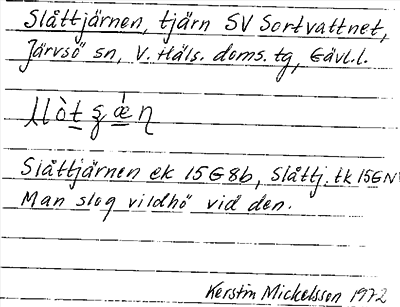 Slåttjärnen, tjärn SV Sortvattnet,
Järvsö sn, V. Häls. doms. tg, Gävl.l.
Slåttjärnen ek 15G8b, Slåttj. tk 15GNV
Man slog vildhö vid den.
Kerstin Mickelsson 1972